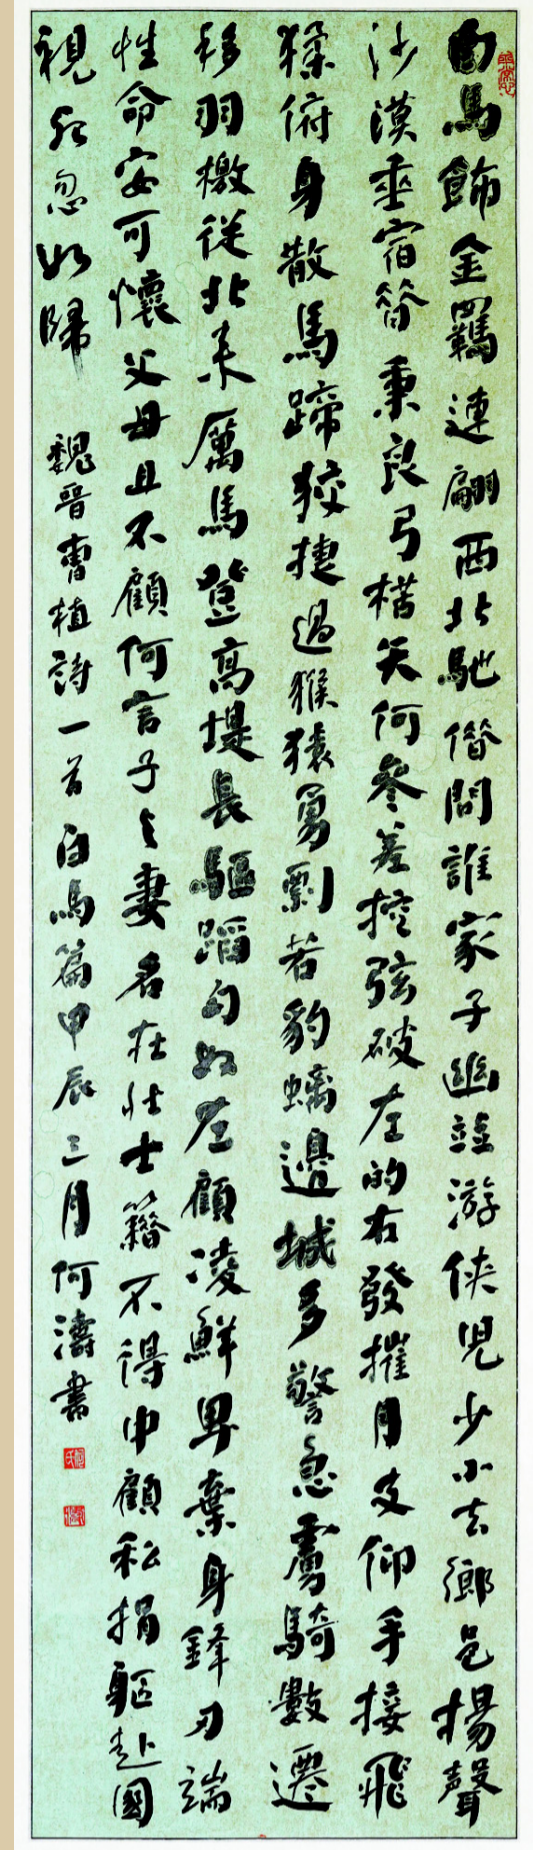 白馬飾金羈連翩西北馳借問誰家子幽並游俠兒少小去鄉邑揚聲
沙漠垂宿昔秉良弓楛矢何參差控弦破左的右發摧月支仰手接飛
猱俯身散馬蹄狡捷過猴猿勇剽若豹螭邊城多警急虜騎數遷
移羽檄從北来厲馬登高堤長驅蹈匈奴左顧凌鮮卑棄身鋒刃端
性命安可懷父母且不顧何言子与妻名在壯士籍不得中顧私捐軀赴國
視死忽如歸 魏晉曹植詩一首白馬篇甲辰三月何濤書